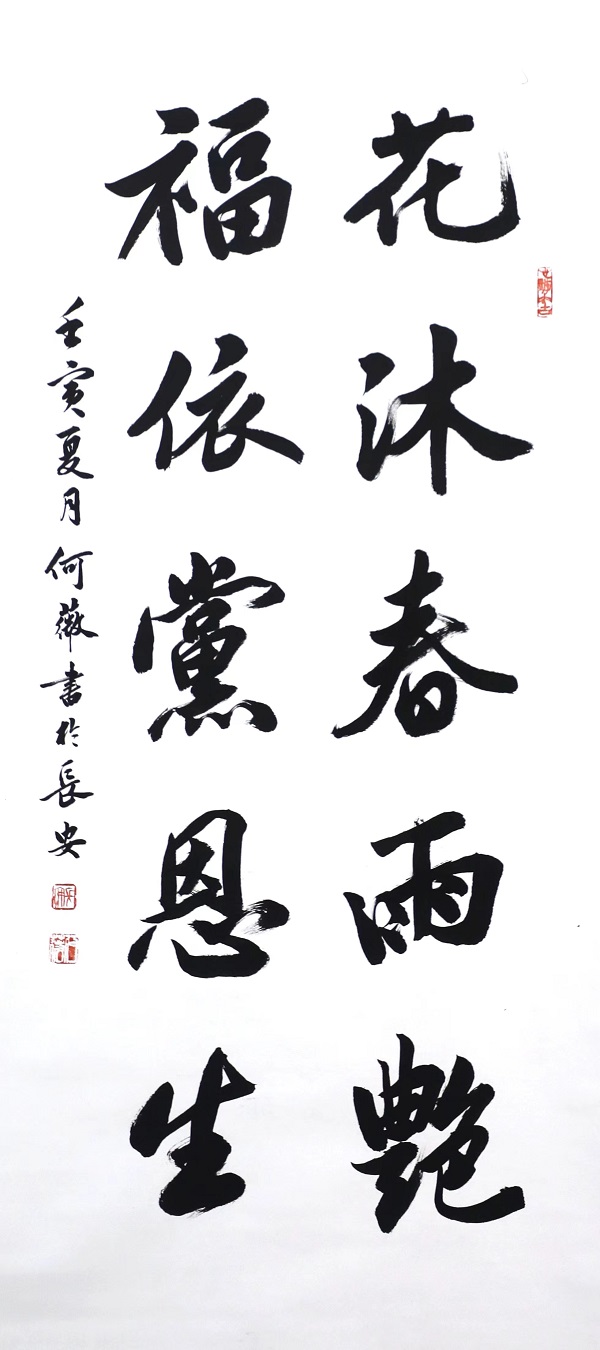 花沐春雨艷
福依黨恩生
壬寅夏月何薇書於長安